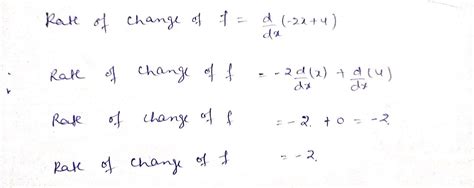 Rate of change of f = d/dx (-2x+4)
Rate of change of f = -2 d/dx (x) + d/dx (4)
Rate of change of f = -2. + 0 = -2.
Rate of change of f = -2.